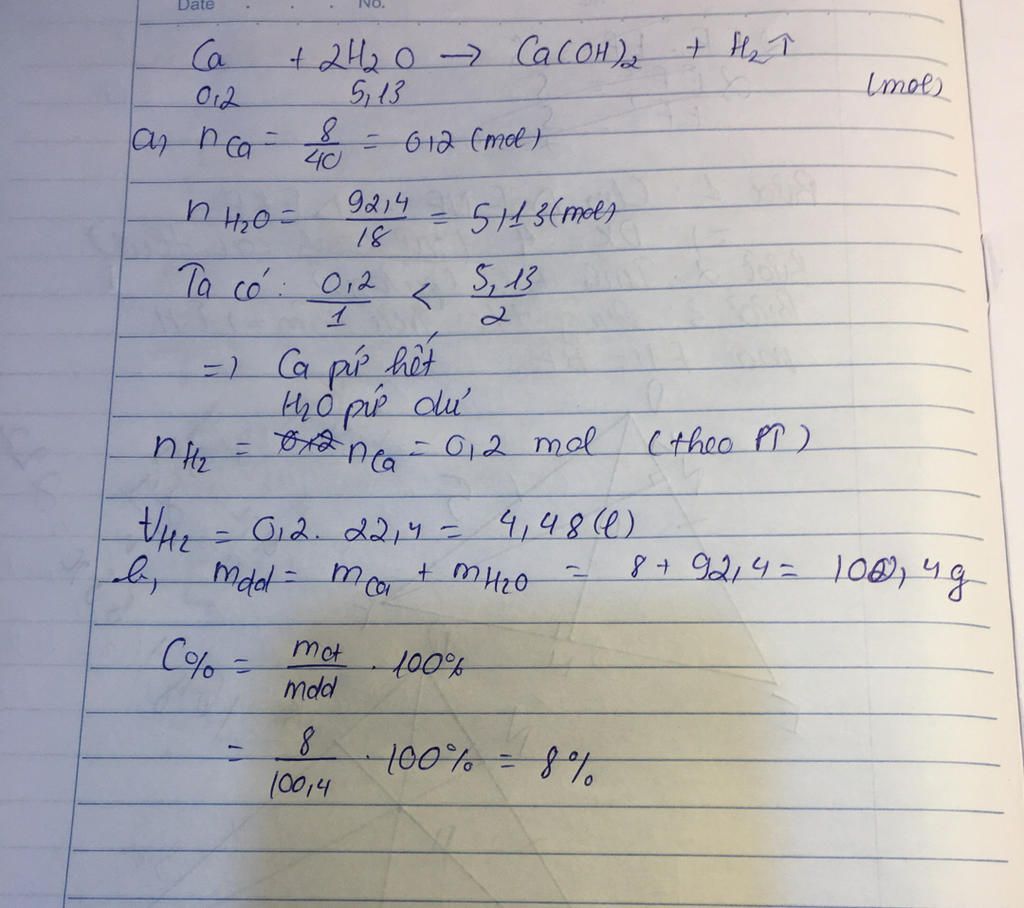 Date No.
Ca + 2H2O → Ca(OH)2 + H2↑
0,2 5,13 (mol)
a, nCa = 8/40 = 0,2 (mol)
nH2O = 92,4/18 = 5,13 (mol)
Ta có: 0,2/1 < 5,13/2
=) Ca pứ hết
H2O pứ dư
nH2 = nCa = 0,2 mol (theo PT)
VH2 = 0,2. 22,4 = 4,48 (l)
b, mdd = mCa + mH2O = 8 + 92,4 = 100,4g
C% = mct/mdd . 100%
= 8/100,4 . 100% = 8%